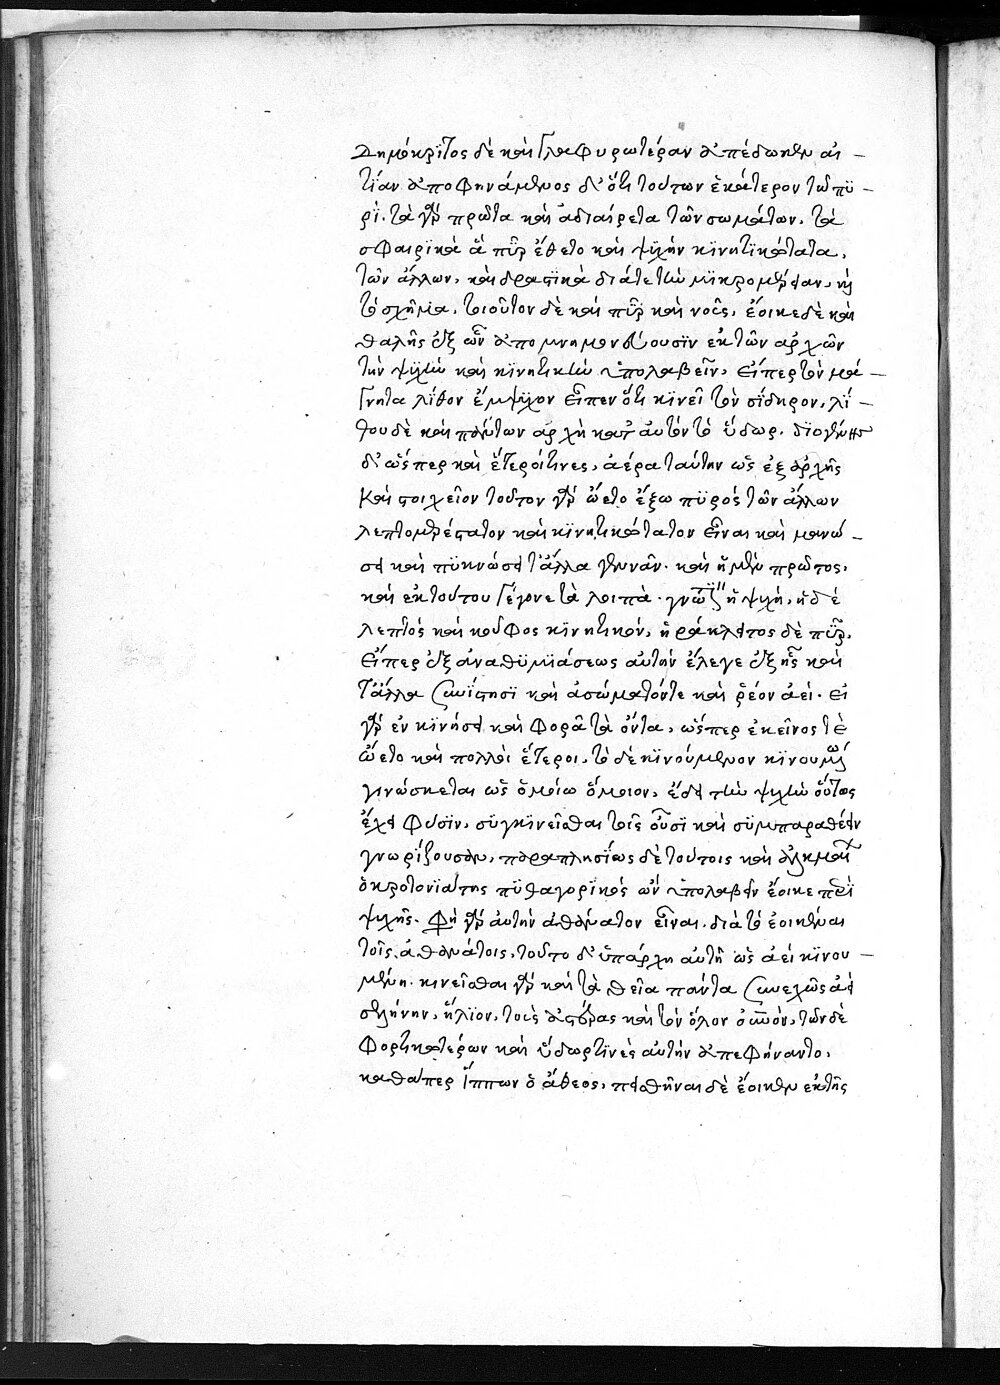 Δημόκρϊτος δὲ καὶ γλαφυρωτέραν ἀπέδωκεν αἰ-
τίαν ἀποφηνάμενος διότι τούτων ἑκάτερον τῶ πϋ-
ρὶ. τὰ γὰρ πρῶτα καὶ ἀδιαίρετα τῶν σωμάτων, τὰ
σφαιρϊκὰ ἃ πῦρ ἔθετο καὶ ψϋχὴν κϊνητϊκώτατα,
τῶν ἄλλων, καὶ δραστϊκὰ διά τε τὴν μϊκρομέρειαν, καὶ
τὸ σχῆμα, τοιοῦτον δὲ καὶ πῦρ καὶ νοῦς, ἔοικε δὲ καὶ
θαλῆς ἐξ ὧν ἀπομνημονεύουσϊν ἐκ τῶν ἀρχῶν
τὴν ψϋχὴν καὶ κϊνητικὴν ὑπολαβεῖν, εἴπερ τὸν μά-
γνητα λίθον ἔμψϋχον εἶπεν ὅτι κϊνεῖ τὸν σίδηρον, λί-
θου δὲ καὶ πάντων ἀρχὴ κατ' αὐτὸν τὸ ὕδωρ. δϊογένης
δ' ὥσπερ καὶ ἕτεροί τινες, ἀέρα ταύτην ὡς ἐξ ἀρχῆς
καὶ στοιχεῖον τοῦτον γὰρ ὤετο ἔξω πϋρὸς τῶν ἄλλων
λεπτομερέστατον καὶ κϊνητικώτατον εἶναι καὶ μανώ-
σει καὶ πϋκνώσει τἄλλα γεννᾶν. καὶ ἡ μὲν πρῶτος,
καὶ ἐκ τούτου γέγονε τὰ λοιπὰ. γνωρίζει ἡ ψϋχὴ, ἡ δὲ
λεπτὸς καὶ κοῦφος κϊνητικόν, ἡράκλειτος δὲ πῦρ,
εἴπερ ἐξ ἀναθϋμϊάσεως αὐτὴν ἔλεγε ἐξ ἧς καὶ
τἄλλα συνίστησϊ καὶ ἀσώματόν τε καὶ ῥέον ἀεί. εἰ
γὰρ ἐν κϊνήσει καὶ φορᾶ τὰ ὄντα, ὥσπερ ἐκεῖνος τὲ
ὤετο καὶ πολλοὶ ἕτεροι, τὸ δὲ κϊνούμενον κϊνουμένω
γινώσκεται ὡς ὁμοίω ὅμοιον, ἔδει τὴν ψϋχὴν οὕτως
ἔχειν φύσϊν, σϋγκϊνεῖσθαι τοῖς οὖσϊ καὶ σϋμπαραθέειν
γνωρίζουσαν, παραπλησίως δὲ τούτοις καὶ ἀλκμαίων
ὁ κροτονϊάτης πϋθαγορϊκὸς ὢν ὑπολαβεῖν ἔοικε περὶ
ψϋχῆς. φησὶ γὰρ αὐτὴν ἀθάνατον εἶναι. διὰ τὸ ἐοικέναι
τοῖς ἀθανάτοις, τοῦτο δ' ὑπάρχη αὐτῆ ὡς ἀεὶ κϊνου-
μένη. κινεῖσθαι γὰρ καὶ τὰ θεῖα πάντα συνεχῶς ἀεὶ
σελήνην, ἥλϊον, τοὺς ἀστέρας καὶ τὸν ὅλον οὐρανόν, τῶν δὲ
φορτικωτέρων καὶ ὕδωρ τϊνὲς αὐτὴν ἀπεφήναντο,
καθάπερ ἵππων ὁ ἄθεος, πεισθῆναι δὲ ἔοικεν ἐκ τῆς